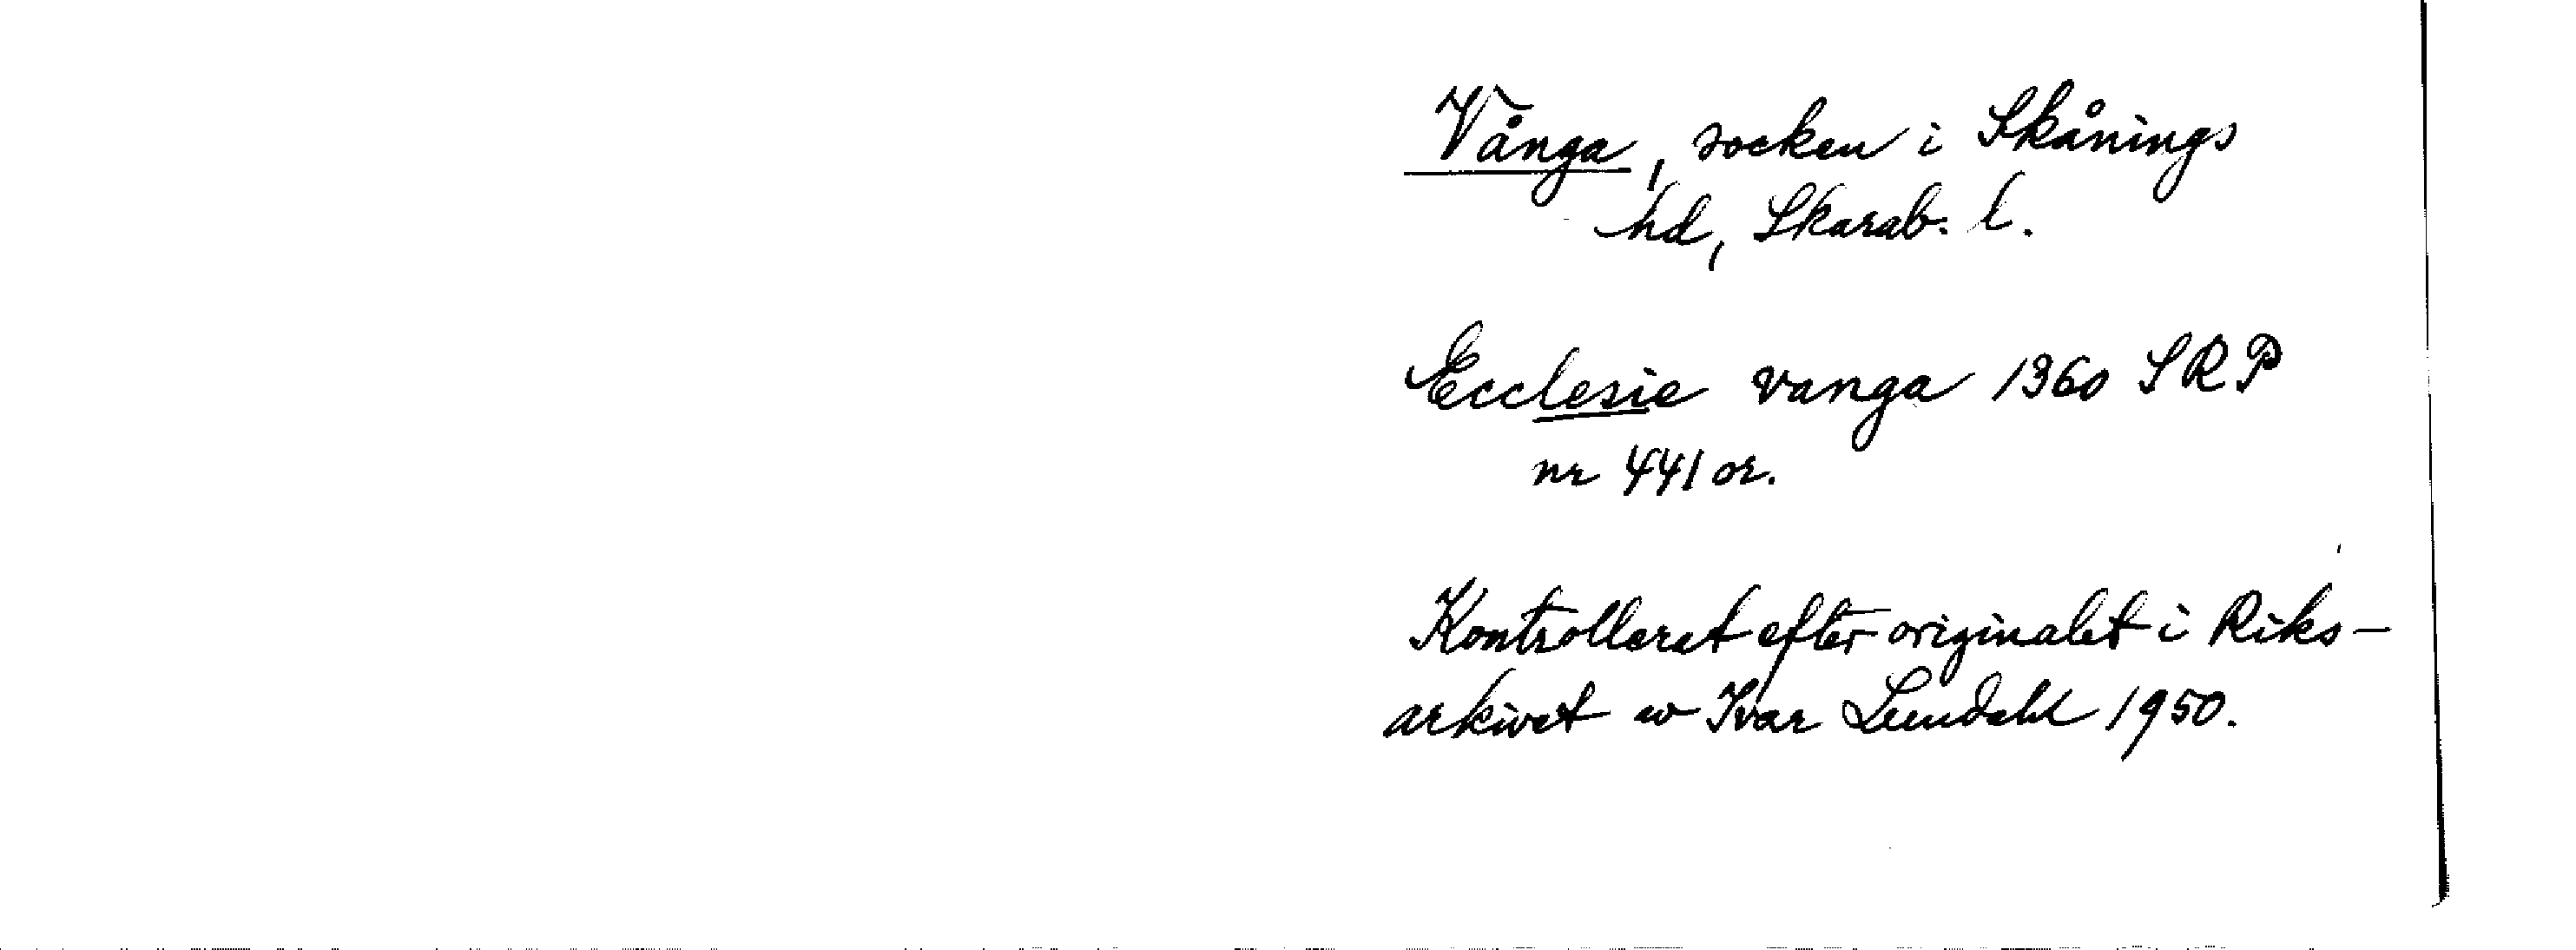 Vånga, socken i Skånings
hd, Skarab. l.
Ecclesie vanga 1360 SRP
nr 441 or.
Kontrollerat efter originalet i Riks-
arkivet av Ivar Lundahl 1950.